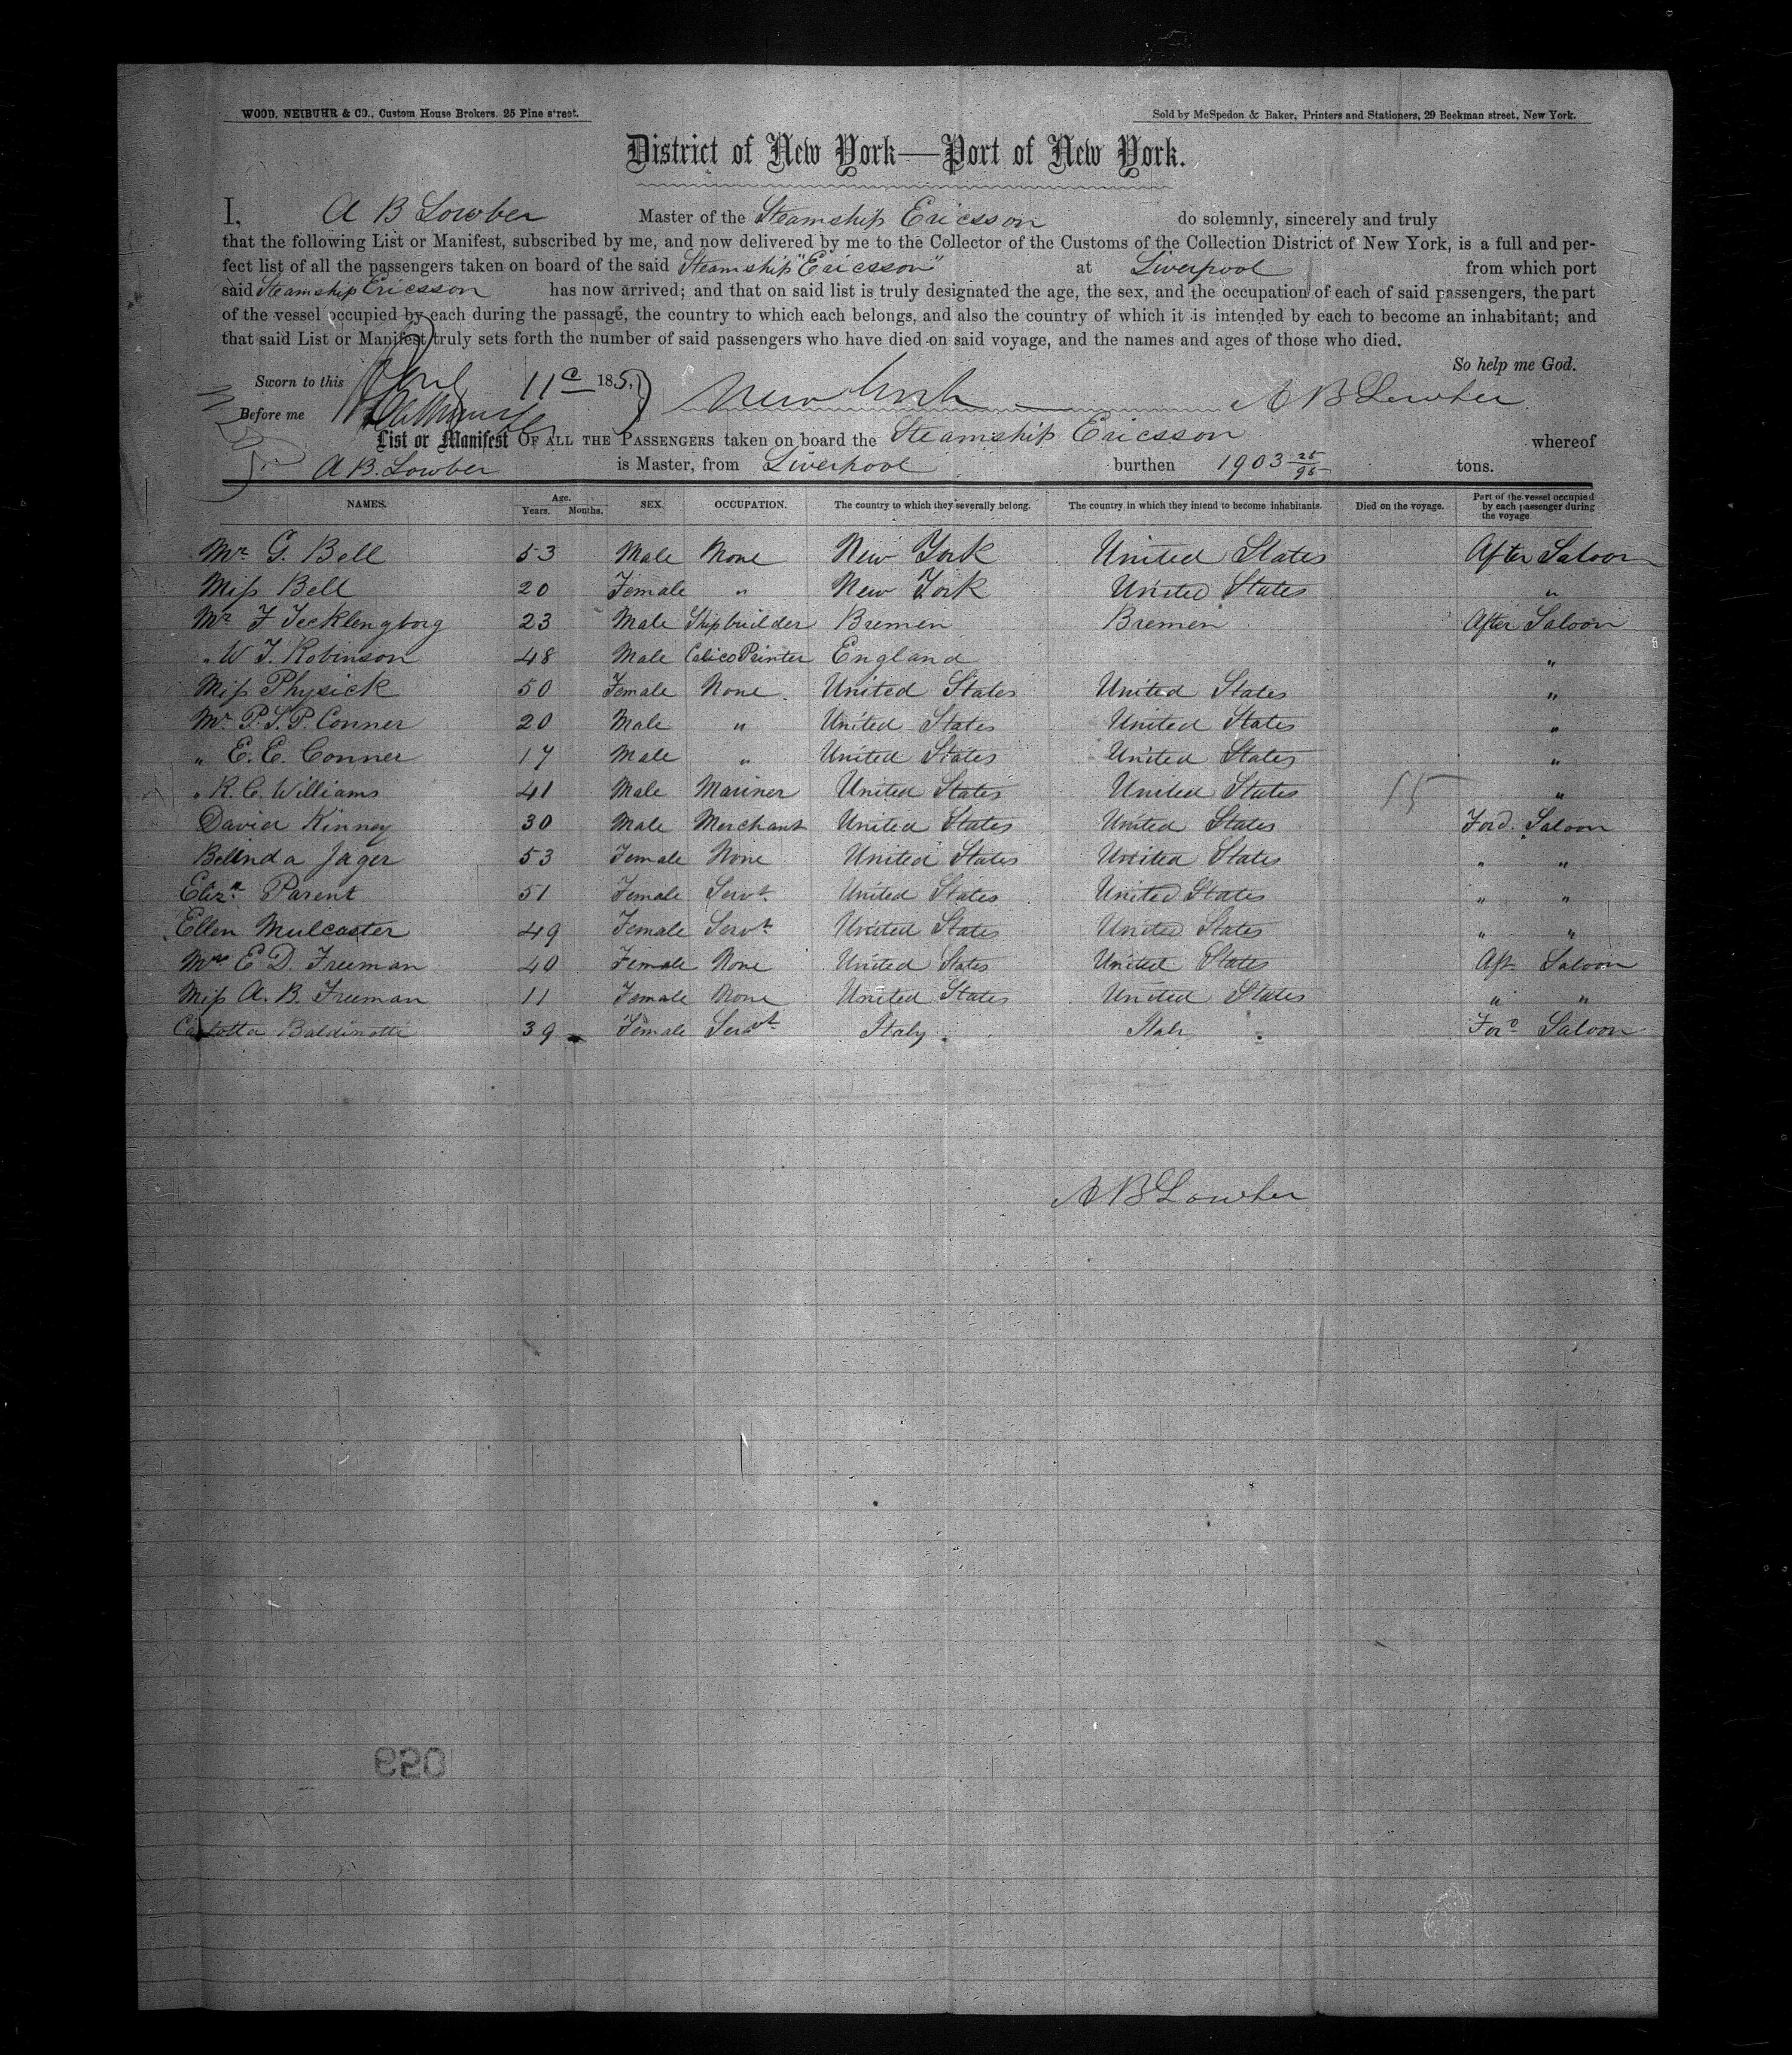 WOOD, NEIBUHR & CO., Custom House Brokers. 25 Pine street.
Sold by McSpedon & Baker, Printers and Stationers, 29 Beekman street, New York.
District of New York—Port of New York.
I, A B Lowber Master of the Steamship Ericsson do solemnly, sincerely and truly
that the following List or Manifest, subscribed by me, and now delivered by me to the Collector of the Customs of the Collection District of New York, is a full and per-
fect list of all the passengers taken on board of the said Steamship "Ericsson" at Liverpool from which port
said Steamship Ericsson has now arrived; and that on said list is truly designated the age, the sex, and the occupation of each of said passengers, the part
of the vessel occupied by each during the passage, the country to which each belongs, and also the country of which it is intended by each to become an inhabitant; and
that said List or Manifest truly sets forth the number of said passengers who have died on said voyage, and the names and ages of those who died.
So help me God.
Sworn to this April 11 185
Before me New York A B Lowber
List or Manifest OF ALL THE PASSENGERS taken on board the Steamship Ericsson whereof
A B. Lowber is Master, from Liverpool burthen 1903 25/95 tons.
NAMES. Age. Years. Months. SEX. OCCUPATION. The country to which they severally belong. The country in which they intend to become inhabitants. Died on the voyage. Part of the vessel occupied by each passenger during the voyage
Mr. G. Bell 53 Male None New York United States After Saloon
Miss Bell 20 Female " New York United States "
Mr F Tecklengborg 23 Male Shipbuilder Bremen Bremen After Saloon
" W T. Robinson 48 Male Calico Printer England "
Miss Physick 50 Female None United States United States "
Mr P. S. P. Conner 20 Male " United States United States "
" E. E. Conner 17 Male " United States United States "
" R. C. Williams 41 Male Mariner United States United States 15 "
David Kinney 30 Male Merchant United States United States Ford. Saloon
Belinda Jager 53 Female None United States United States " "
Eliza Parent 51 Female Servt. United States United States " "
Ellen Mulcaster 49 Female Servt United States United States " "
Mrs E D. Freeman 40 Female None United States United States Aft Saloon
Miss A. B. Freeman 11 Female None United States United States " "
Carlotta Baldinotti 39 Female Servt Italy Italy Ford Saloon
A B Lowber
059